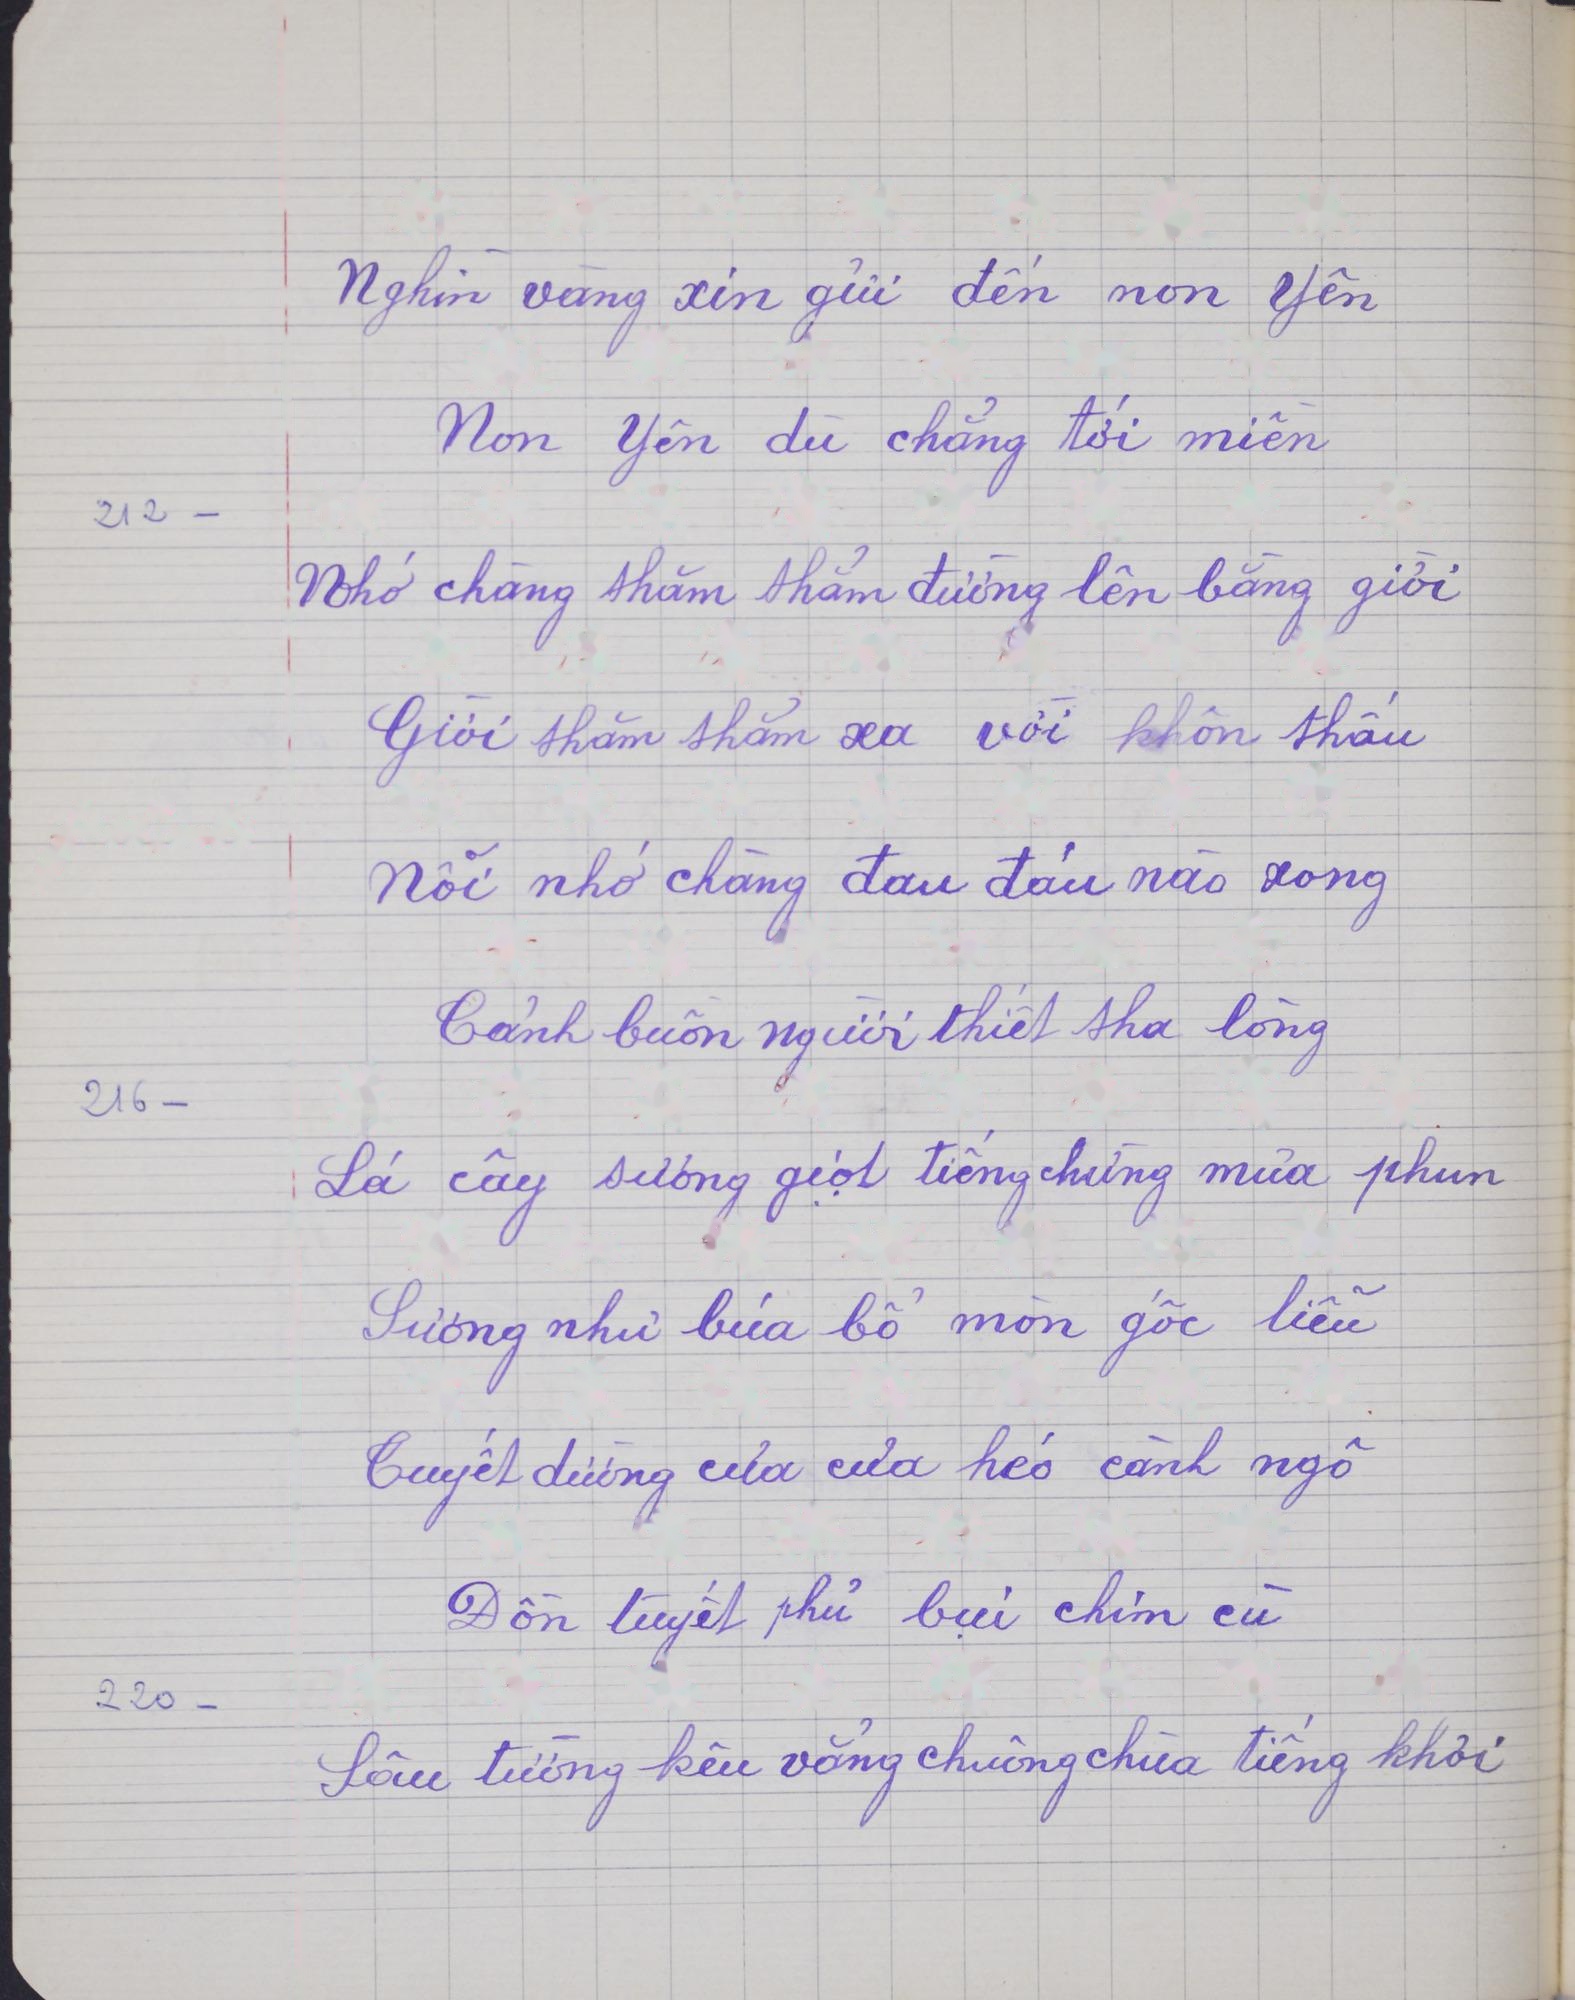 Nghìn vàng xin gửi đến non Yên
Non Yên dù chẳng tới miền
212 –
Nhớ chàng thăm thẳm đường lên bằng giời
Giời thăm thẳm xa vời khôn thấu
Nỗi nhớ chàng đau đáu nào xong
Cảnh buồn người thiết tha lòng
216 –
Lá cây sương giọt tiếng chừng mưa phun
Sương như búa bổ mòn gốc liễu
Tuyết dường cưa cưa héo cành ngô
Dồn tuyết phủ bụi chim cù
220 –
Sâu tường kêu vẳng chuông chùa tiếng khơi